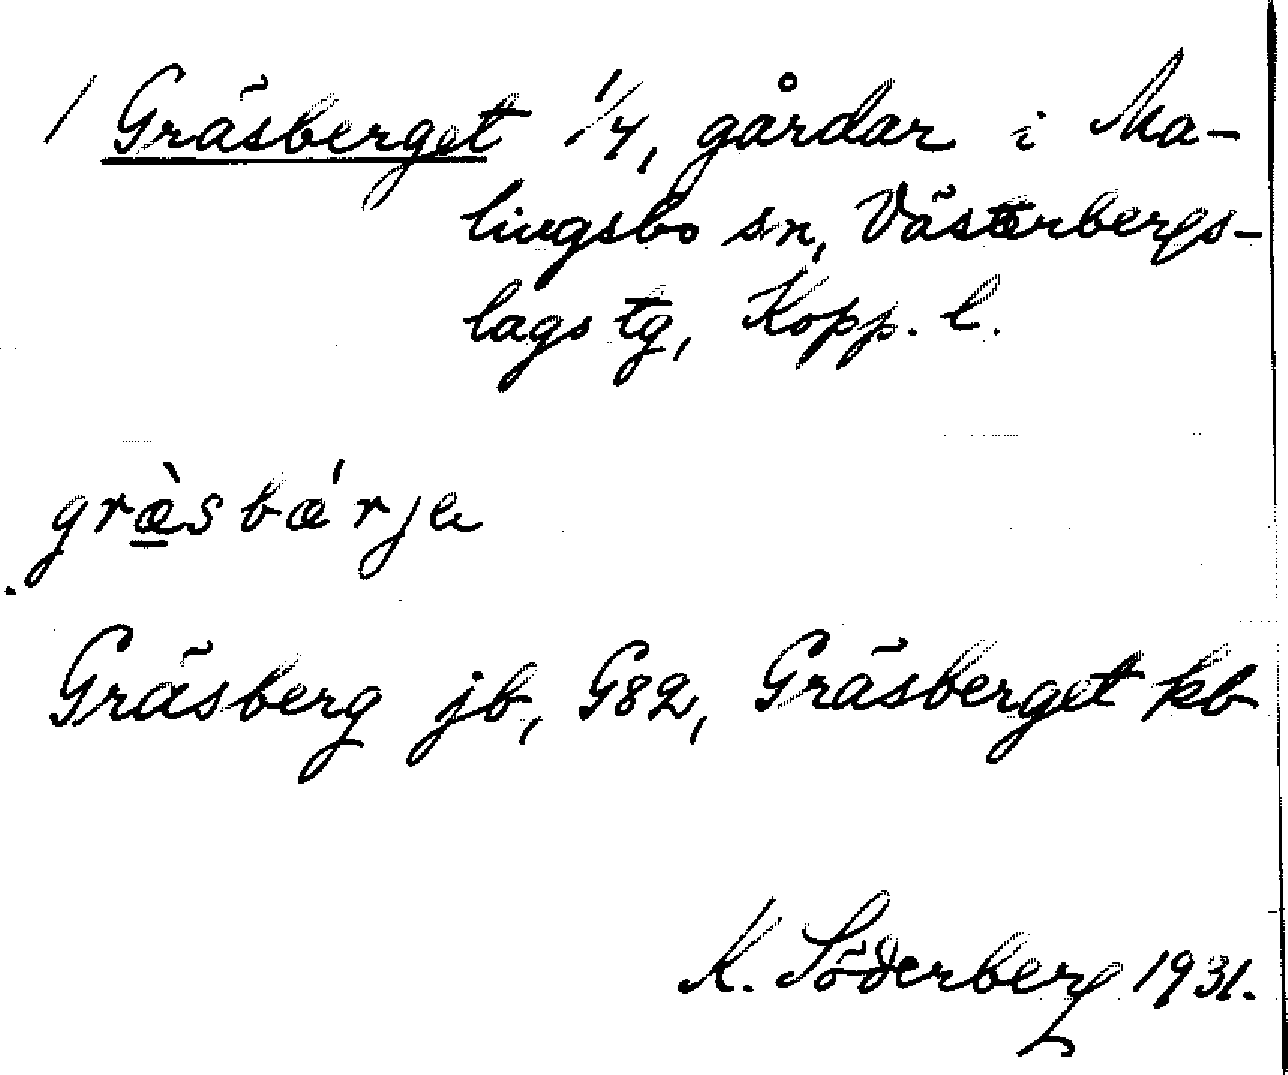 / Gräsberget 1/4, gårdar i Ma-
lingsbo sn, Västerbergs-
lags tg, Kopp. l.
græ̠̀sbǽrje
Gräsberg jb, G82, Gräsberget kb
K. Söderberg 1931.